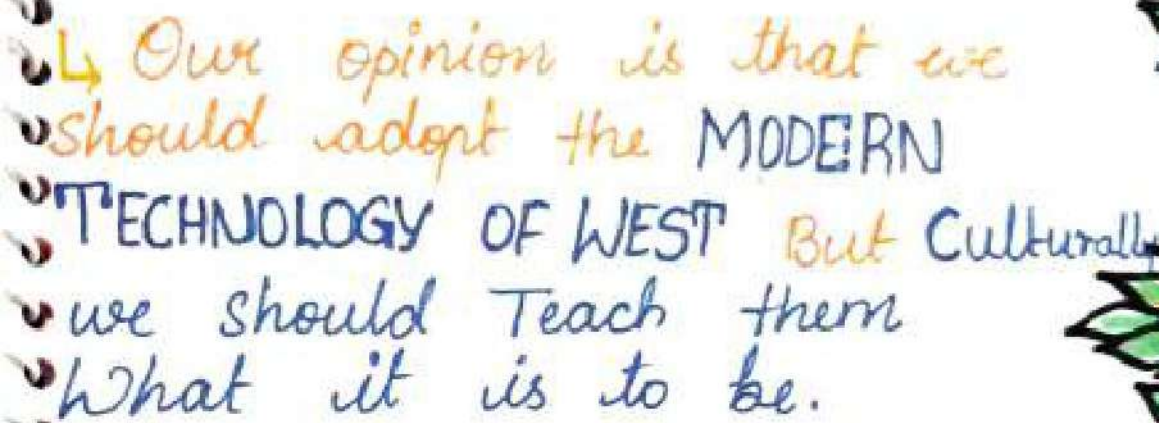 ↳ Our opinion is that we
should adopt the MODERN
TECHNOLOGY OF WEST But Culturally
we should Teach them
What it is to be.